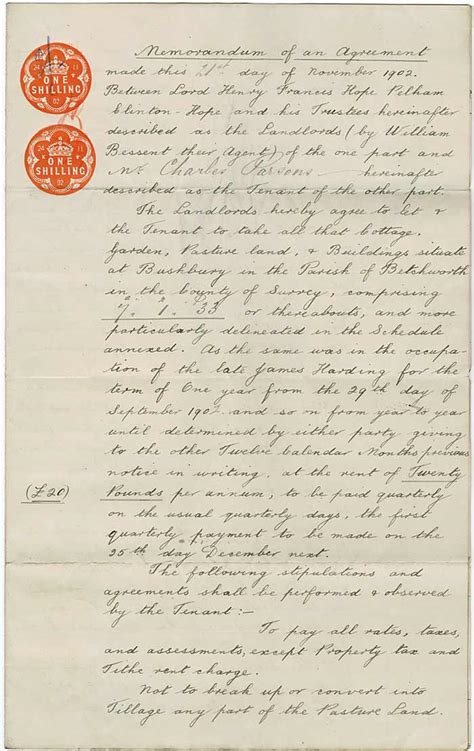 ONE
SHILLING
24 11
02
ONE
SHILLING
24 11
02
Memorandum of an Agreement
made this 21st day of November 1902.
Between Lord Henry Francis Hope Pelham
Clinton-Hope and his Trustees hereinafter
described as the Landlords (by William
Bessent their Agent) of the one part and
Mr Charles Parsons hereinafter
described as the Tenant of the other part.
The Landlords hereby agree to let &
the Tenant to take all that Cottage,
Garden, Pasture land, & Buildings situate
at Bushbury in the Parish of Betchworth
in the County of Surrey, comprising
7. 1. 33 or thereabouts, and more
particularly delineated in the Schedule
annexed. As the same was in the occupa-
tion of the late James Harding for the
term of One year from the 29th day of
September 1902 and so on from year to year
until determined by either party giving
to the other Twelve Calendar Months previous
notice in writing, at the rent of Twenty
(£20) Pounds per annum, to be paid quarterly
on the usual quarterly days, the first
quarterly payment to be made on the
25th day December next.
The following stipulations and
agreements shall be performed & observed
by the Tenant:-
To pay all rates, taxes,
and assessments, except Property tax and
Tithe rent charge.
Not to break up or convert into
Tillage any part of the Pasture Land.